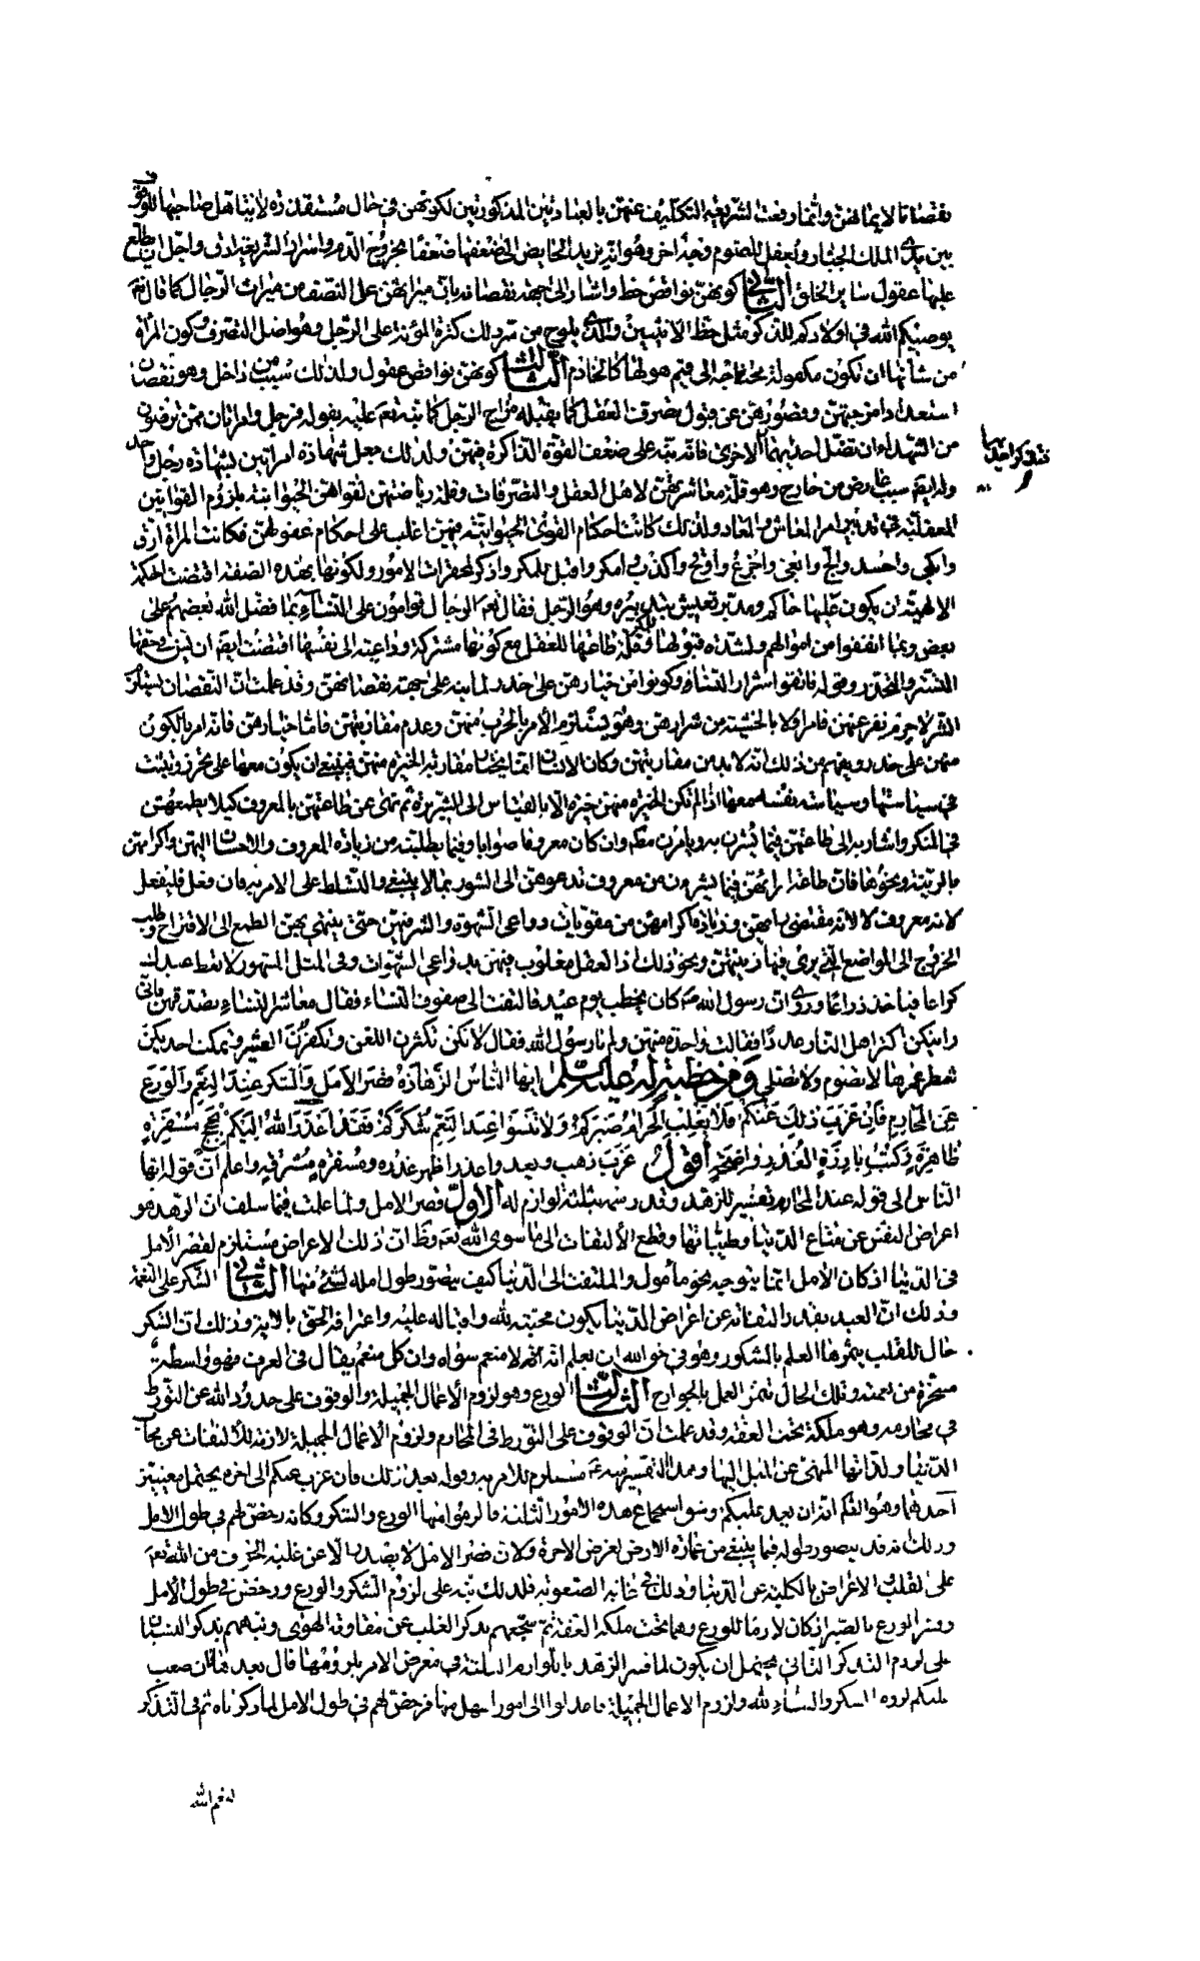 نقصانا لايمانهن وانما رفعت الشريعة التكليف عنهن بالعبادتين المذكورتين لكونهن في حال مستقذرة لا يتاهل صاحبها للوقوف
بين يدي الملك الجبار ولعقل للصوم وجه اخر وهو انه يزيد الحايض الى ضعفها ضعفا بخروج الدم واسرار الشريعة ادق واجل ان يطلع
عليها عقول ساير الخلق الثاني كونهن نواقص حظ واشار الى جهة نقصانه بان ميراثهن على النصف من ميراث الرجال كما قال تعم
يوصيكم الله في اولادكم للذكر مثل حظ الانثيين والذي يلوح من سر ذلك كثرة المؤنة على الرجل وهو اصل التصرف وكون المراة
من شانها ان تكون مكفولة محتاجة الى قيم هو لها كالخادم الثالث كونهن نواقص عقول ولذلك سببان من داخل وهو نقصان
استعداد امزجتهن وقصورهن عن قبول تصرف العقل كما يقبله مزاج الرجل كما نبه تعم عليه بقوله فرجل وامراتان ممن ترضون
من الشهداء ان تضل احديهما الاخرى فانه نبه على ضعف القوة الذاكرة فيهن ولذلك جعل شهادة امراتين بشهادة رجل واحد
فتذكر احديهما
وله ايضا سبب عارض من خارج وهو قلة معاشرتهن لاهل العقل والتصرفات وقلة رياضتهن لقواهن الحيوانية بلزوم القوانين
العقلية في تدبير امر المعاش والمعاد ولذلك كانت احكام القوى الحيوانية فيهن اغلب على احكام عقولهن فكانت المراة ارق
وابكى واحسد والج وابغى واجزع واوقح واكذب وامكر واقبل للمكر واذكر لمحقرات الامور ولكونها بهذه الصفة اقتضت الحكمة
الالهية ان يكون عليها حاكم ومدبر تعيش بتدبيره وهو الرجل فقال تعم الرجال قوامون على النساء بما فضل الله بعضهم على
بعض وبما انفقوا من اموالهم ولشدة قبولها للمكر وقلة طاعتها للعقل مع كونها مشتركة وداعية الى نفسها اقتضت ايضا ان يسن في حقها
التستر والتخدر وقوله فاتقوا اشرار النساء وكونوا من خيارهن على حذر لما نبه على جهة نقصانهن وقد علمت ان النقصان يستلزم
الشر لاجرم نفر عنهن فامر اولا بالخشية من شرارهن وهو يستلزم الامر بالهرب منهن وعدم مقاربتهن فاما خيارهن فانه امر بالكون
منهن على حذر ويفهم من ذلك انه لا بد من مقاربتهن وكان الانسان انما يختار مقاربة الخيرة منهن فينبغي ان يكون معها على تحرز وتثبت
في سياستها وسياسة نفسه معها اذ لم تكن الخيرة منهن خيرة الا بالقياس الى الشريرة ثم نهى عن طاعتهن بالمعروف كيلا يطمعن
في المنكر واشار به الى طاعتهن فيما يشرن به ويامرن مطلقا وان كان معروفا صوابا وفيما يطلبنه من زيادة المعروف والاحسان اليهن واكرامهن
بالزينة ونحوها فان طاعة ارائهن فيما يشرن من معروف تدعوهن الى الشور بما لا ينبغي والتسلط على الامر به فان فعل فليفعل
لانه معروف لا لانه مقتضى رايهن وزيادة اكرامهن من مقويات دواعي الشهوة والشر فيهن حتى ينتهي بهن الطمع الى الاقتراح وطلب
الخروج الى المواضع التي يرى فيها زينتهن ونحو ذلك اذ العقل مغلوب فيهن بدواعي الشهوات وفي المثل المشهور لا تعط عبدك
كراعا فياخذ ذراعا وروي ان رسول الله صم كان يخطب يوم عيد فالتفت الى صفوف النساء فقال معاشر النساء تصدقن فاني
رايتكن اكثر اهل النار عددا فقالت واحدة منهن ولم يا رسول الله فقال لانكن تكثرن اللعن وتكفرن العشير وتمكث احديكن
شطر عمرها لا تصوم ولا تصلي ومن خطبة له عليه السلم ايها الناس الزهادة قصر الامل والشكر عند النعم والورع
عن المحارم فان عزب ذلك عنكم فلا يغلب الحرام صبركم ولا تنسوا عند النعم شكركم فقد اعذر الله اليكم بحجج مسفرة
ظاهرة وكتب بارزة العذر واضحة اقول عزب ذهب وبعد واعذر اظهر عذره ومسفرة مشرقة واعلم ان قوله ايها
الناس الى قوله عند المحارم تفسير للزهد وقد رسمه بثلثة لوازم له الاول قصر الامل ولما علمت فيما سلف ان الزهد هو
اعراض النفس عن متاع الدنيا وطيباتها وقطع الالتفات الى ما سوى الله تعم وظ ان ذلك الاعراض مستلزم لقصر الامل
في الدنيا اذ كان الامل انما يتوجه نحو مامول والملتفت الى الدنيا كيف يتصور طول امله لشئ منها الثاني الشكر على النعمة
وذلك ان العبد بقدر التفاته عن اعراض الدنيا يكون محبته لله واقباله عليه واعترافه الحق بالائه وذلك ان الشكر
حال للقلب يثمرها العلم بالشكور وهو في حق الله ان يعلم انه لا منعم سواه وان كل منعم يقال في العرف فهو واسطة
مسخرة من نعمته وتلك الحال تثمر العمل بالجوارح الثالث الورع وهو لزوم الاعمال الجميلة والوقوف على حدود الله عن التورط
في محارمه وهو ملكة تحت العفة وقد علمت ان الوقوف على التورط في المحارم ولزوم الاعمال الجميلة لازمة للالتفات عن محاب
الدنيا ولذاتها المنهى عن الميل اليها وهذا التفسير منه عم مستلزم للامر به وقوله بعد ذلك فان عزب عنكم الى اخره يحتمل معنيين
احدهما وهو الظ انه ان بعد عليكم وشق استجماع هذه الامور الثلثة فالزموا منها الورع والشكر وكانه رخص لهم في طول الامل
وذلك انه قد يتصور طوله فيما ينبغي من عمارة الارض لغرض الاخرة ولان قصر الامل لا يصدر الا عن غلبة الخوف من الله تعم
على القلب والاعراض بالكلية عن الدنيا وذلك في غاية الصعوبة فلذلك نبه على لزوم الشكر والورع ورخص في طول الامل
وفسر الورع بالصبر اذ كان لازما للورع وهما تحت ملكة العفة ثم شجعهم بذكر الغلب عن مقاومة الهوى ونبههم بذكر النسيان
على لزوم التذكر الثاني يحتمل ان يكون لما فسر الزهد باللوازم الثلثة في معرض الامر بلزومها قال بعد فان صعب
عليكم لزوم الشكر والثناء لله ولزوم الاعمال الجميلة فاعدلوا الى امور اسهل منها فرخص لهم في طول الامل لما ذكرناه ثم في التذكر
لنعم الله